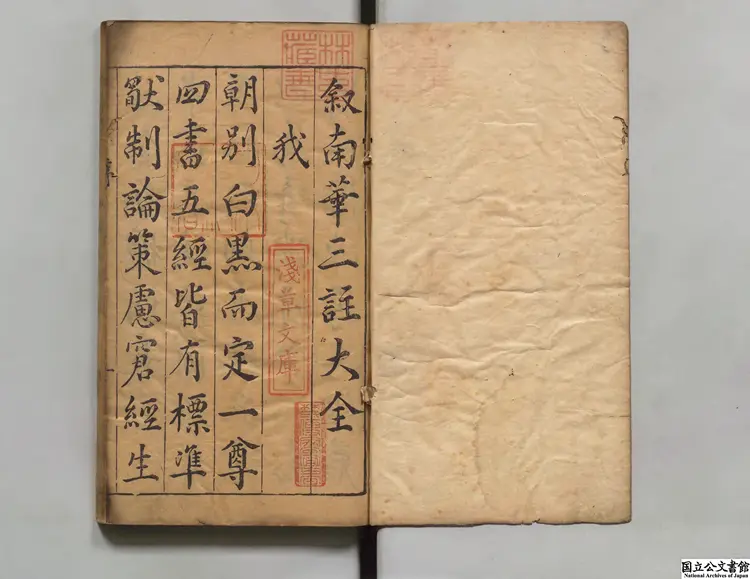 叙南華三註大全
我
朝別白黒而定一尊
四書五經皆有標準
猒制論策慮窘經生
序
林氏藏書
淺草文庫
国立公文書館
National Archives of Japan